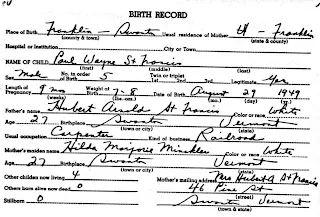 BIRTH RECORD
Place of Birth Franklin - Swanton Usual residence of Mother - Franklin
(county & town) (state & county)
Hospital or Institution City or Town
NAME OF CHILD Paul Wayne St Francis
(first) (middle) (last)
Sex Male No. in order of 5 Twin or triplet Legitimate yes
Length of Pregnancy 9 mos Weight at Birth 7-8 Date of Birth August 29 1949
(weeks) (lbs. oz.) (mo.) (day) (yr.)
Father's name Hubert Arnold St Francis Color or race White
Age 27 Birthplace Swanton Vermont
(town or city) (state)
Usual occupation Carpenter Kind of business Railroad
Mother's maiden name Hilda Marjorie Minckler Color or race White
Age 27 Birthplace Swanton Vermont
(town or city) (state)
Other children now living 4 Mother's mailing address Mrs Hubert A St Francis
Others born alive now dead 0 46 Pine St
Stillborn 0 Swanton Vermont